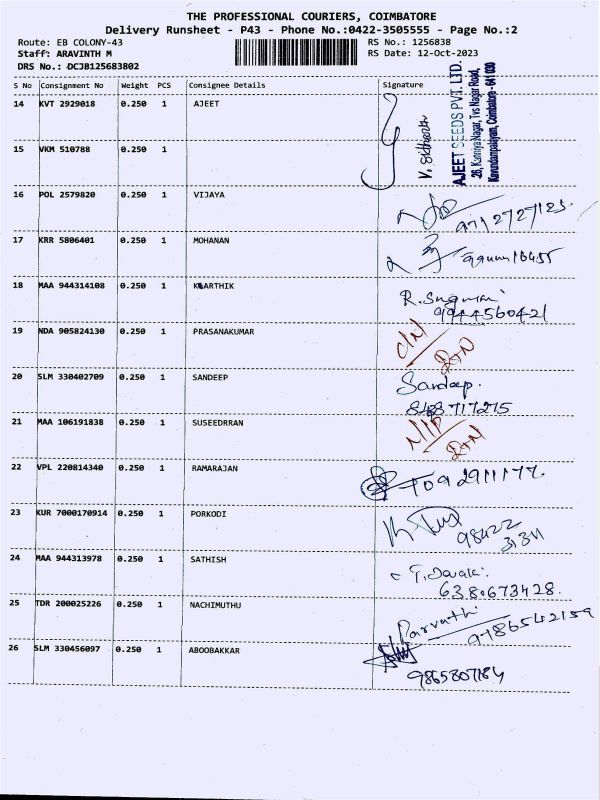 THE PROFESSIONAL COURIERS, COIMBATORE
Delivery Runsheet - P43 - Phone No.:0422-3505555 - Page No.:2
Route: EB COLONY-43 RS No.: 1256838
Staff: ARAVINTH M RS Date: 12-Oct-2023
DRS No.: DCJB125683802
S No Consignment No Weight PCS Consignee Details Signature
14 KVT 2929018 0.250 1 AJEET
AJEET SEEDS PVT. LTD.
26, Kanniya Nagar, Tvs Nagar Road,
Kavundampalayam, Coimbatore - 641 030
15 VKM 510788 0.250 1
16 POL 2579820 0.250 1 VIJAYA
9712727125.
17 KRR 5806401 0.250 1 MOHANAN
18 MAA 944314108 0.250 1 KARTHIK
9944560421
19 NDA 905824130 0.250 1 PRASANAKUMAR
20 SLM 330402709 0.250 1 SANDEEP Sandeep.
21 MAA 106191838 0.250 1 SUSEEDRRAN
22 VPL 220814340 0.250 1 RAMARAJAN
23 KUR 7000170914 0.250 1 PORKODI
98422
24 MAA 944313978 0.250 1 SATHISH
25 TDR 200025226 0.250 1 NACHIMUTHU
Parvathi
26 SLM 330456097 0.250 1 ABOOBAKKAR
9865807184